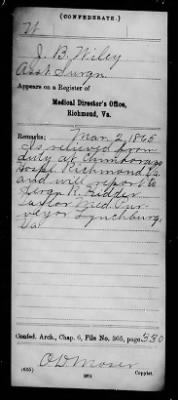 (CONFEDERATE.)
W
J. B. Wiley
Asst Surgn.
Appears on a Register of
Medical Director's Office,
Richmond, Va.
Remarks: Mar 2, 1865
Is relieved from
duty at Chimborazo
Hospl. Richmond Va
and will report to
Surgn R.
Taylor Med. Pur-
veyor Lynchburg,
Va
Confed. Arch., Chap. 6, File No. 365, page 330
O D Moser
(635) Copyist.